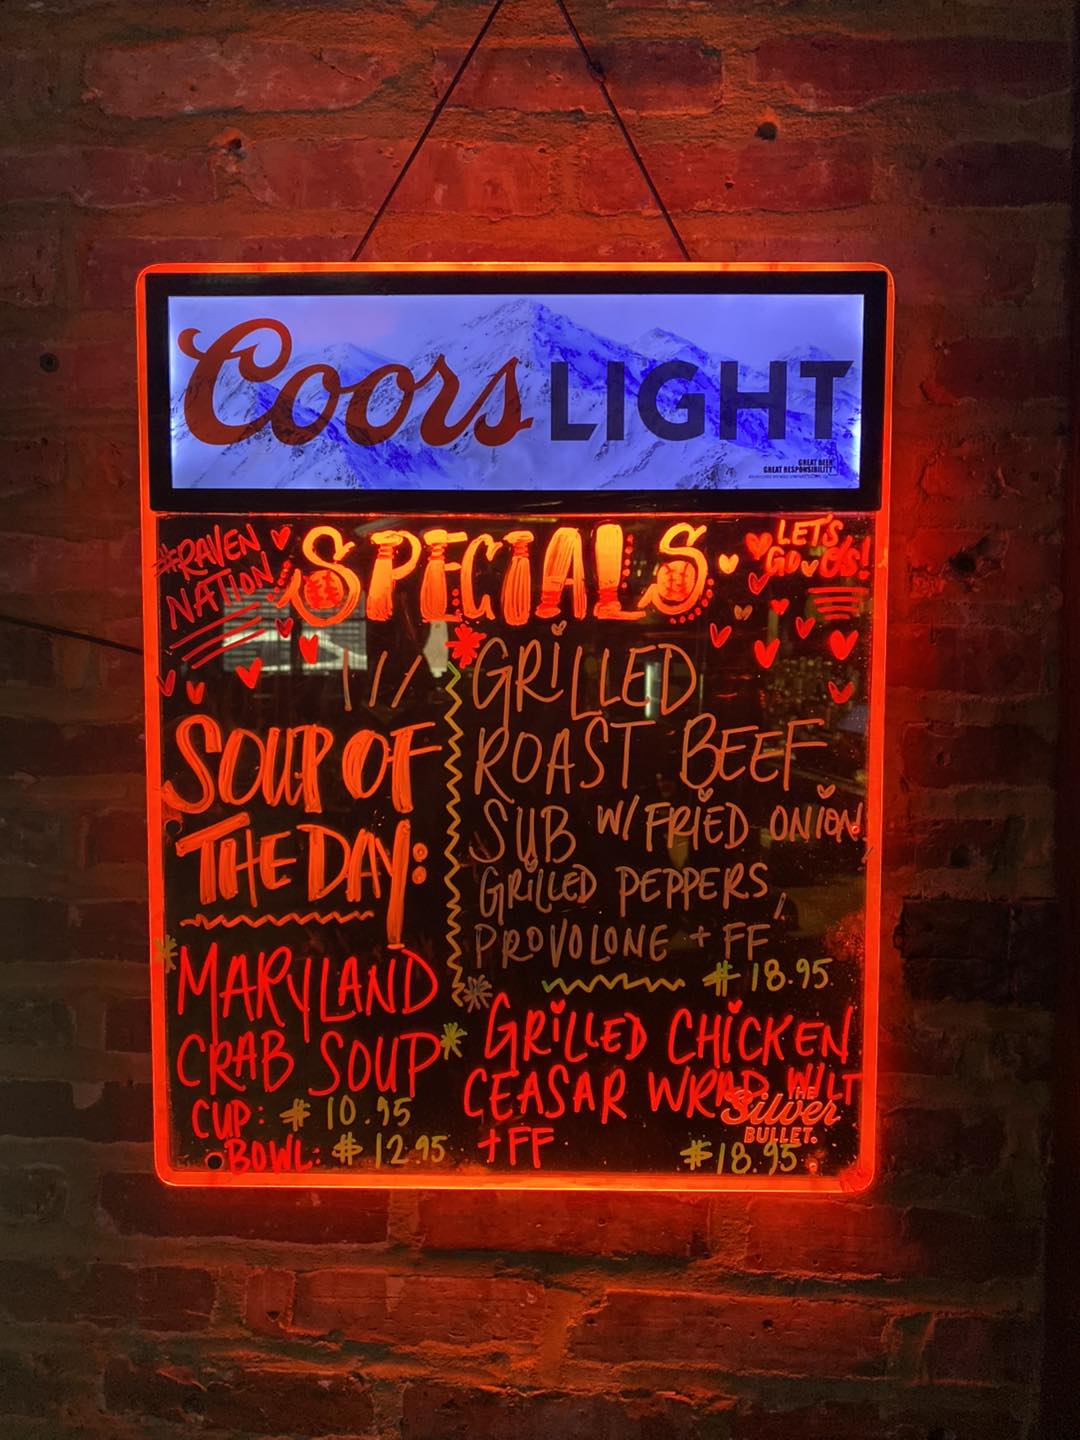 Coors LIGHT
GREAT BEER
GREAT RESPONSIBILITY
#RAVEN
NATION
SPECIALS
LET'S
GO O's!
SOUP OF
THE DAY:
MARYLAND
CRAB SOUP
CUP: $10.95
BOWL: $12.95
GRILLED
ROAST BEEF
SUB W/ FRIED ONION,
GRILLED PEPPERS,
PROVOLONE + FF
$18.95
GRILLED CHICKEN
CEASAR WRAP W/LT
+FF
$18.95
THE
Silver
BULLET.